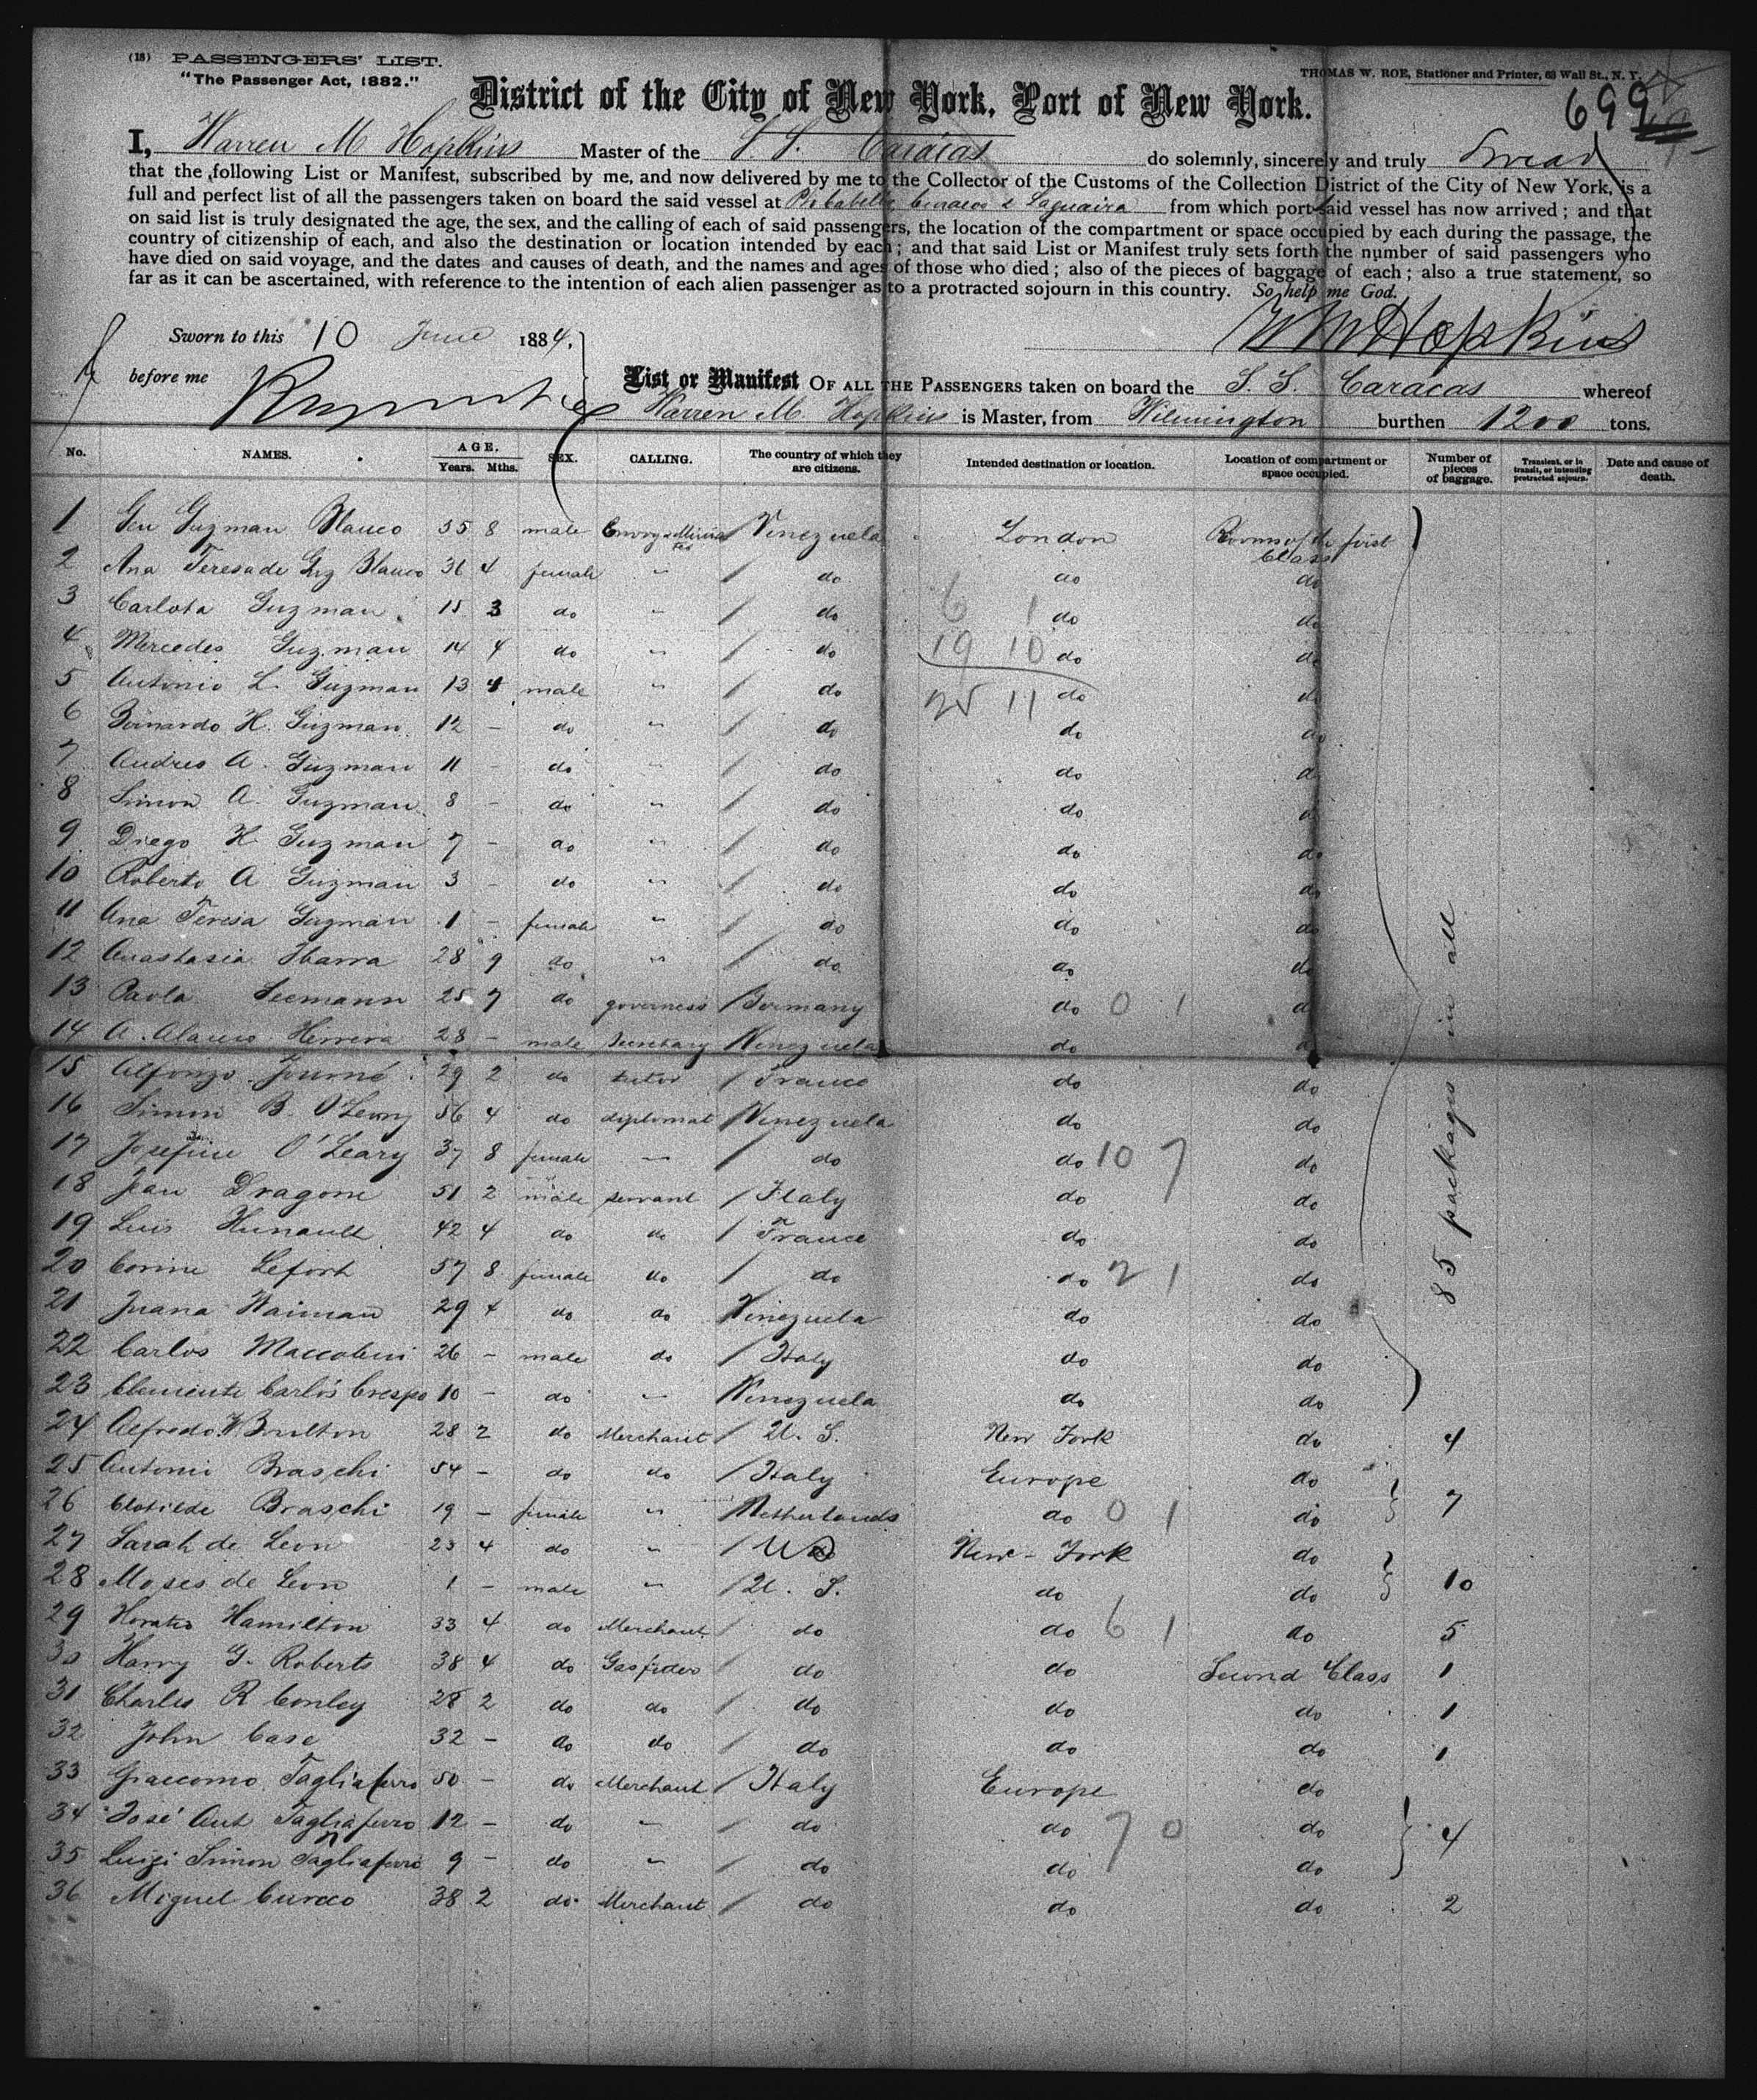 (18) PASSENGERS' LIST.
"The Passenger Act, 1882."
THOMAS W. ROE, Stationer and Printer, 63 Wall St., N. Y.
699
District of the City of New York, Port of New York.
I, Warren M Hopkins Master of the S. S. Caracas do solemnly, sincerely and truly Swear
that the following List or Manifest, subscribed by me, and now delivered by me to the Collector of the Customs of the Collection District of the City of New York, is a
full and perfect list of all the passengers taken on board the said vessel at Laguaira from which port said vessel has now arrived; and that
on said list is truly designated the age, the sex, and the calling of each of said passengers, the location of the compartment or space occupied by each during the passage, the
country of citizenship of each, and also the destination or location intended by each; and that said List or Manifest truly sets forth the number of said passengers who
have died on said voyage, and the dates and causes of death, and the names and ages of those who died; also of the pieces of baggage of each; also a true statement, so
far as it can be ascertained, with reference to the intention of each alien passenger as to a protracted sojourn in this country. So help me God.
W M Hopkins
Sworn to this 10 June 1884,
before me
List or Manifest OF ALL THE PASSENGERS taken on board the S. S. Caracas whereof
Warren M. Hopkins is Master, from Wilmington burthen 1200 tons.
No. NAMES. AGE. Years. Mths. SEX. CALLING. The country of which they are citizens. Intended destination or location. Location of compartment or space occupied. Number of pieces of baggage. Transient, or in transit, or intending protracted sojourn. Date and cause of death.
1 Gen Guzman Blanco 55 8 male Venezuela London Rooms of the first Class
2 Ana Teresa de Guz Blanco 36 4 female " do do do
3 Carlota Guzman 15 3 do " do 6 1 do do
4 Mercedes Guzman 14 4 do " do 19 10 do do
5 Antonio L. Guzman 13 4 male " do 25 11 do do
6 Bernardo H. Guzman 12 - do " do do do
7 Andres A. Guzman 11 - do " do do do
8 Simon A. Guzman 8 - do " do do do
9 Diego H Guzman 7 - do " do do do
10 Roberto A Guzman 3 - do " do do do
11 Ana Teresa Guzman 1 - female " do do do
12 Anastasia Ibarra 28 9 do " do do do
13 Paola Seemann 25 7 do governess Germany do 0 1 do
14 A. Herrera 28 - male Secretary Venezuela do do
15 Alfonzo Journé 29 2 do tutor France do do
16 Simon B. O'Leary 56 4 do diplomat Venezuela do do
17 Josefine O'Leary 37 8 female - do do 10 7 do
18 Jean Dragone 51 2 male servant Italy do do
19 Luis Hunault 42 4 do do France do do
20 Corine Lefort 57 8 female do do do 2 1 do
21 Juana Waiman 29 4 do do Venezuela do do
22 Carlos 26 - male do Italy do do
23 Clemente Carlos Crespo 10 - do - Venezuela do do
85 packages in all
24 Alfredo W Brulton 28 2 do Merchant U. S. New York do 4
25 Antonio Braschi 54 - do do Italy Europe do
26 Clotilde Braschi 19 - female " Netherlands do 0 1 do 7
27 Sarah de Leon 23 4 do " New-York do
28 Moses de Leon 1 - male " U. S. do do 10
29 Horatio Hamilton 33 4 do Merchant do do 6 1 do 5
30 Harry G. Roberts 38 4 do Gasfitter do do Second Class 1
31 Charles R Conley 28 2 do do do do do 1
32 John Case 32 - do do do do do 1
33 Giaccomo Tagliaferro 50 - do Merchant Italy Europe do
34 José Ant Tagliaferro 12 - do - do do 7 0 do 4
35 Luigi Simon Tagliaferro 9 - do - do do do
36 Miguel 38 2 do Merchant do do do 2